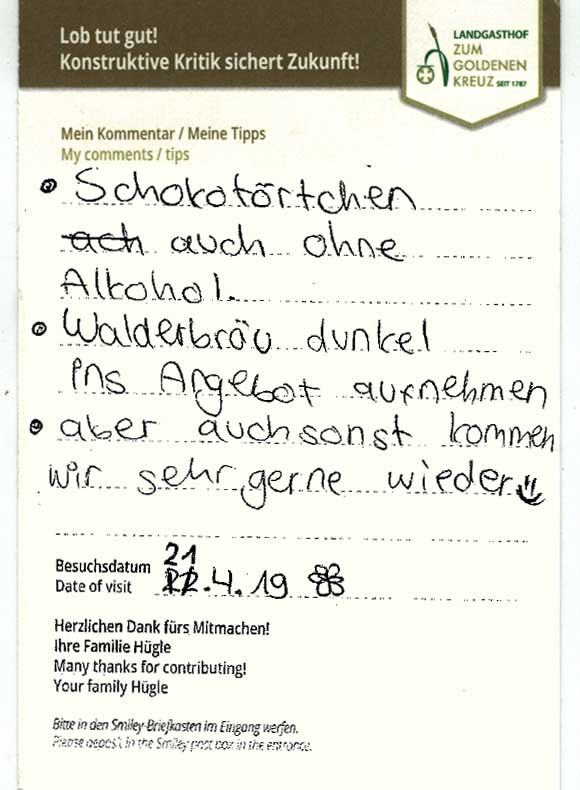 Lob tut gut!
Konstruktive Kritik sichert Zukunft!
LANDGASTHOF
ZUM
GOLDENEN
KREUZ SEIT 1787
Mein Kommentar / Meine Tipps
My comments / tips
Schokotörtchen
ach auch ohne
Alkohol.
Walderbräu dunkel
ins Angebot aufnehmen
aber auch sonst kommen
wir sehr gerne wieder
Besuchsdatum 21
Date of visit 22.4.19
Herzlichen Dank fürs Mitmachen!
Ihre Familie Hügle
Many thanks for contributing!
Your family Hügle
Bitte in den Smiley-Briefkasten im Eingang werfen.
Please deposit in the Smiley post box in the entrance.